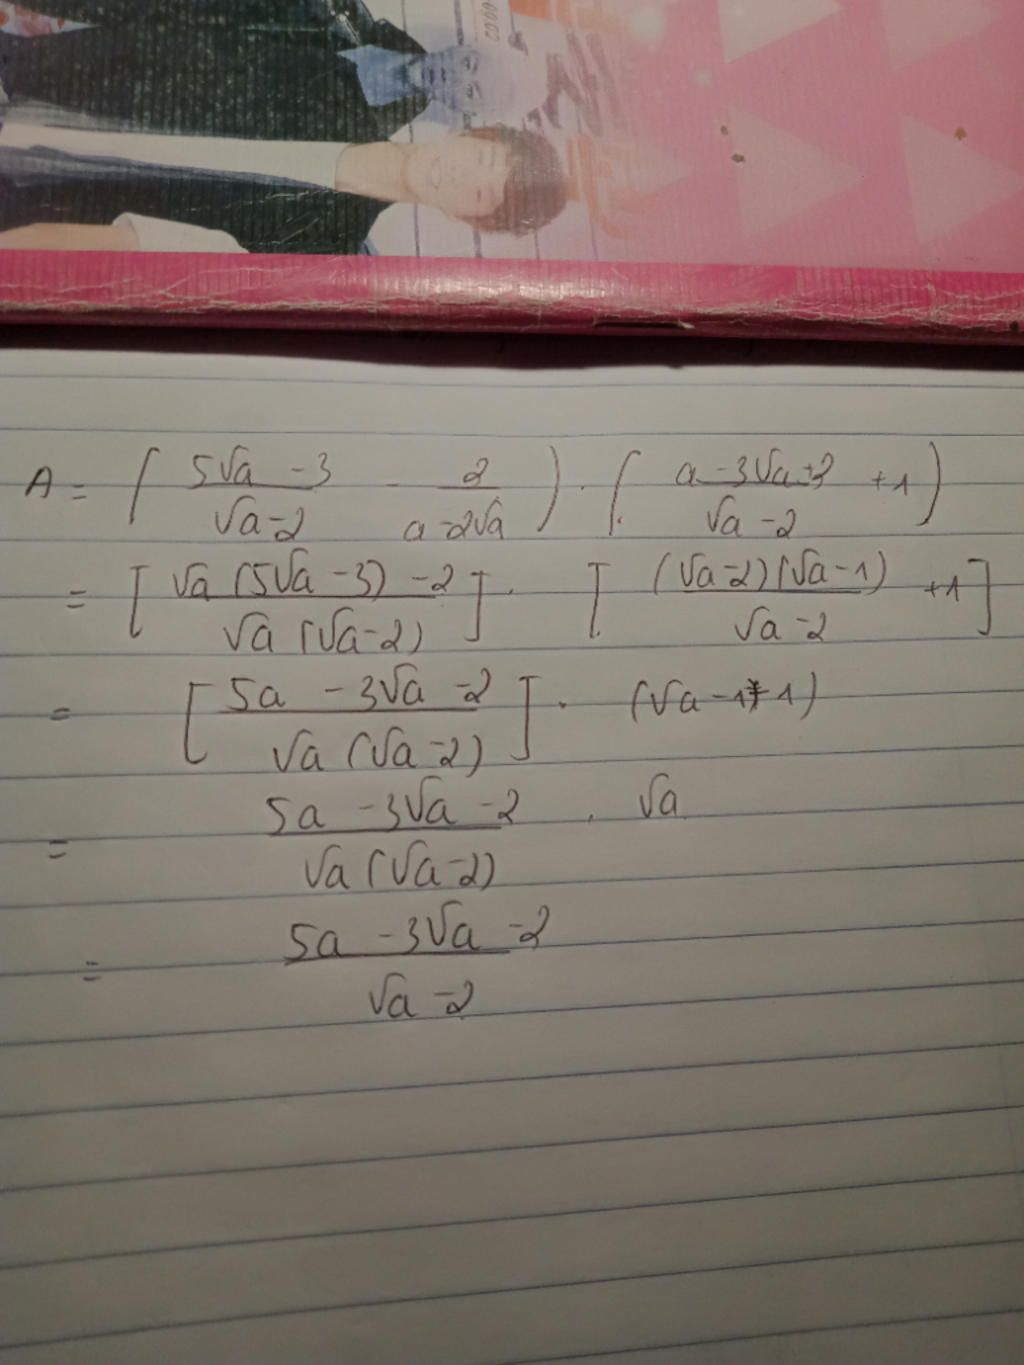 A = ( (5√a - 3)/(√a - 2) - 2/(a - 2√a) ) . ( (a - 3√a + 2)/(√a - 2) + 1 )
= [ (√a (5√a - 3) - 2)/(√a (√a - 2)) ] . [ ((√a - 2)(√a - 1))/(√a - 2) + 1 ]
= [ (5a - 3√a - 2)/(√a (√a - 2)) ] . (√a - 1 + 1)
= (5a - 3√a - 2)/(√a (√a - 2)) . √a
= (5a - 3√a - 2)/(√a - 2)